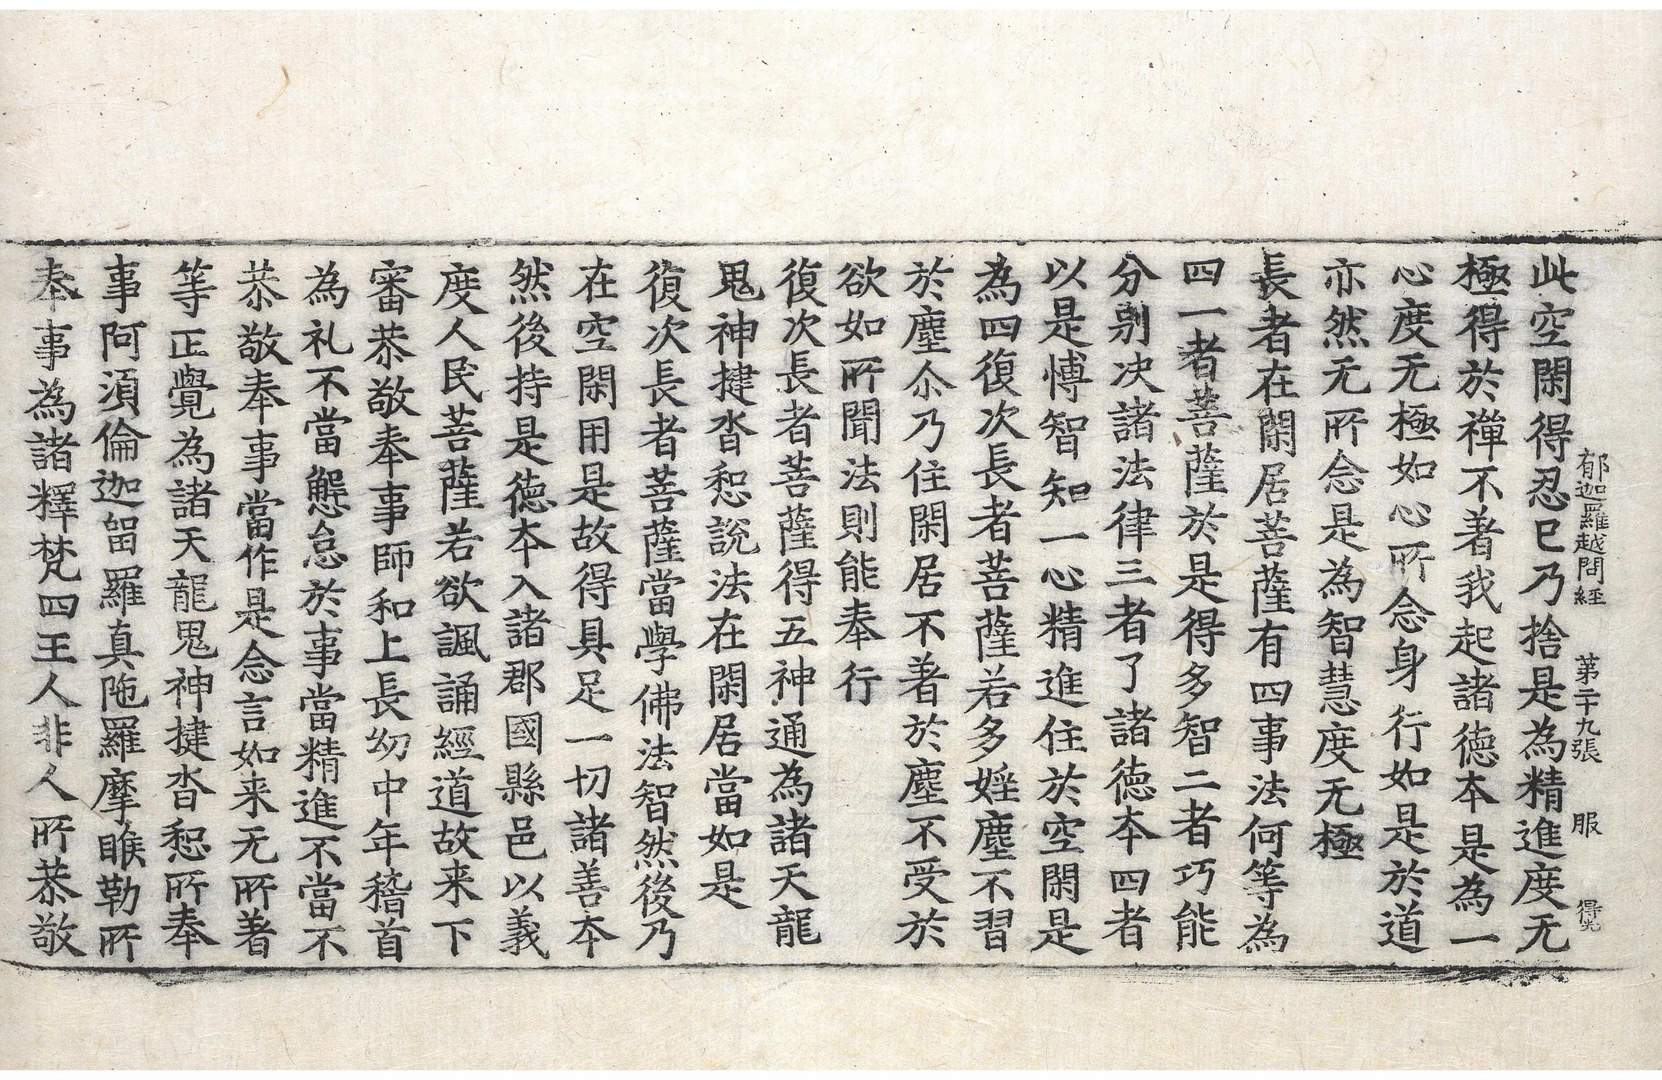 郁迦羅越問経 第二十九張 服 得光
此空閑得忍已乃捨是為精進度无
極得於禪不著我起諸德本是為一
心度无極如心所念身行如是於道
亦然无所念是為智慧度无極
長者在閑居菩薩有四事法何等為
四一者菩薩於是得多智二者巧能
分别决諸法律三者了諸德本四者
以是博智知一心精進住於空閑是
為四復次長者菩薩若多婬塵不習
於塵尒乃住閑居不著於塵不受於
欲如所聞法則能奉行
復次長者菩薩得五神通為諸天龍
鬼神揵沓惒説法在閑居當如是
復次長者菩薩當學佛法智然後乃
在空閑用是故得具足一切諸善本
然後持是德本入諸郡國縣邑以義
度人民菩薩若欲諷誦經道故来下
審恭敬奉事師和上長幼中年稽首
為礼不當懈怠於事當精進不當不
恭敬奉事當作是念言如来无所著
等正覺為諸天龍鬼神揵沓惒所奉
事阿須倫迦留羅真陁羅摩睺勒所
奉事為諸釋梵四王人非人所恭敬